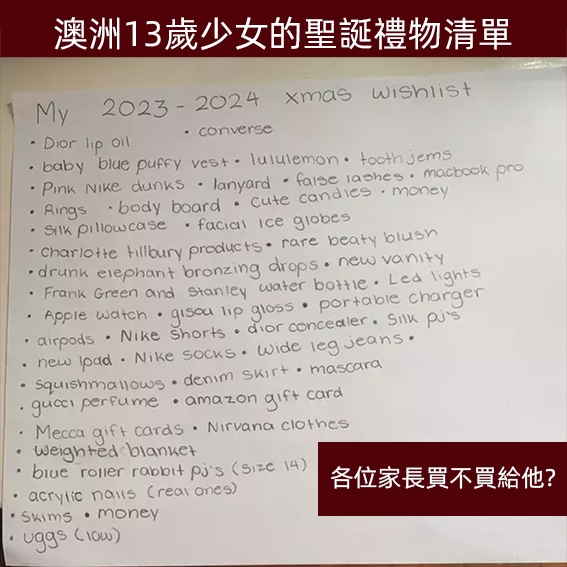 澳洲13歲少女的聖誕禮物清單
My 2023-2024 xmas wishlist
• Dior lip oil • converse
• baby blue puffy vest • lululemon • tooth jems
• Pink Nike dunks • lanyard • false lashes • macbook pro
• Rings • body board • cute candles • money
• silk pillowcase • facial ice globes
• Charlotte tillbury products • rare beaty blush
• drunk elephant bronzing drops • new vanity
• Frank Green and Stanley water bottle • Led lights
• Apple watch • gisou lip gloss • portable charger
• airpods • Nike shorts • dior concealer • silk pj's
• new ipad • Nike socks • wide leg jeans •
• squishmallows • denim skirt • mascara
• gucci perfume • amazon gift card
• Mecca gift cards • Nirvana clothes
• weighted blanket
• blue roller rabbit pj's (size 14)
• acrylic nails (real ones)
• Skims • money
• uggs (low)
各位家長買不買給他?